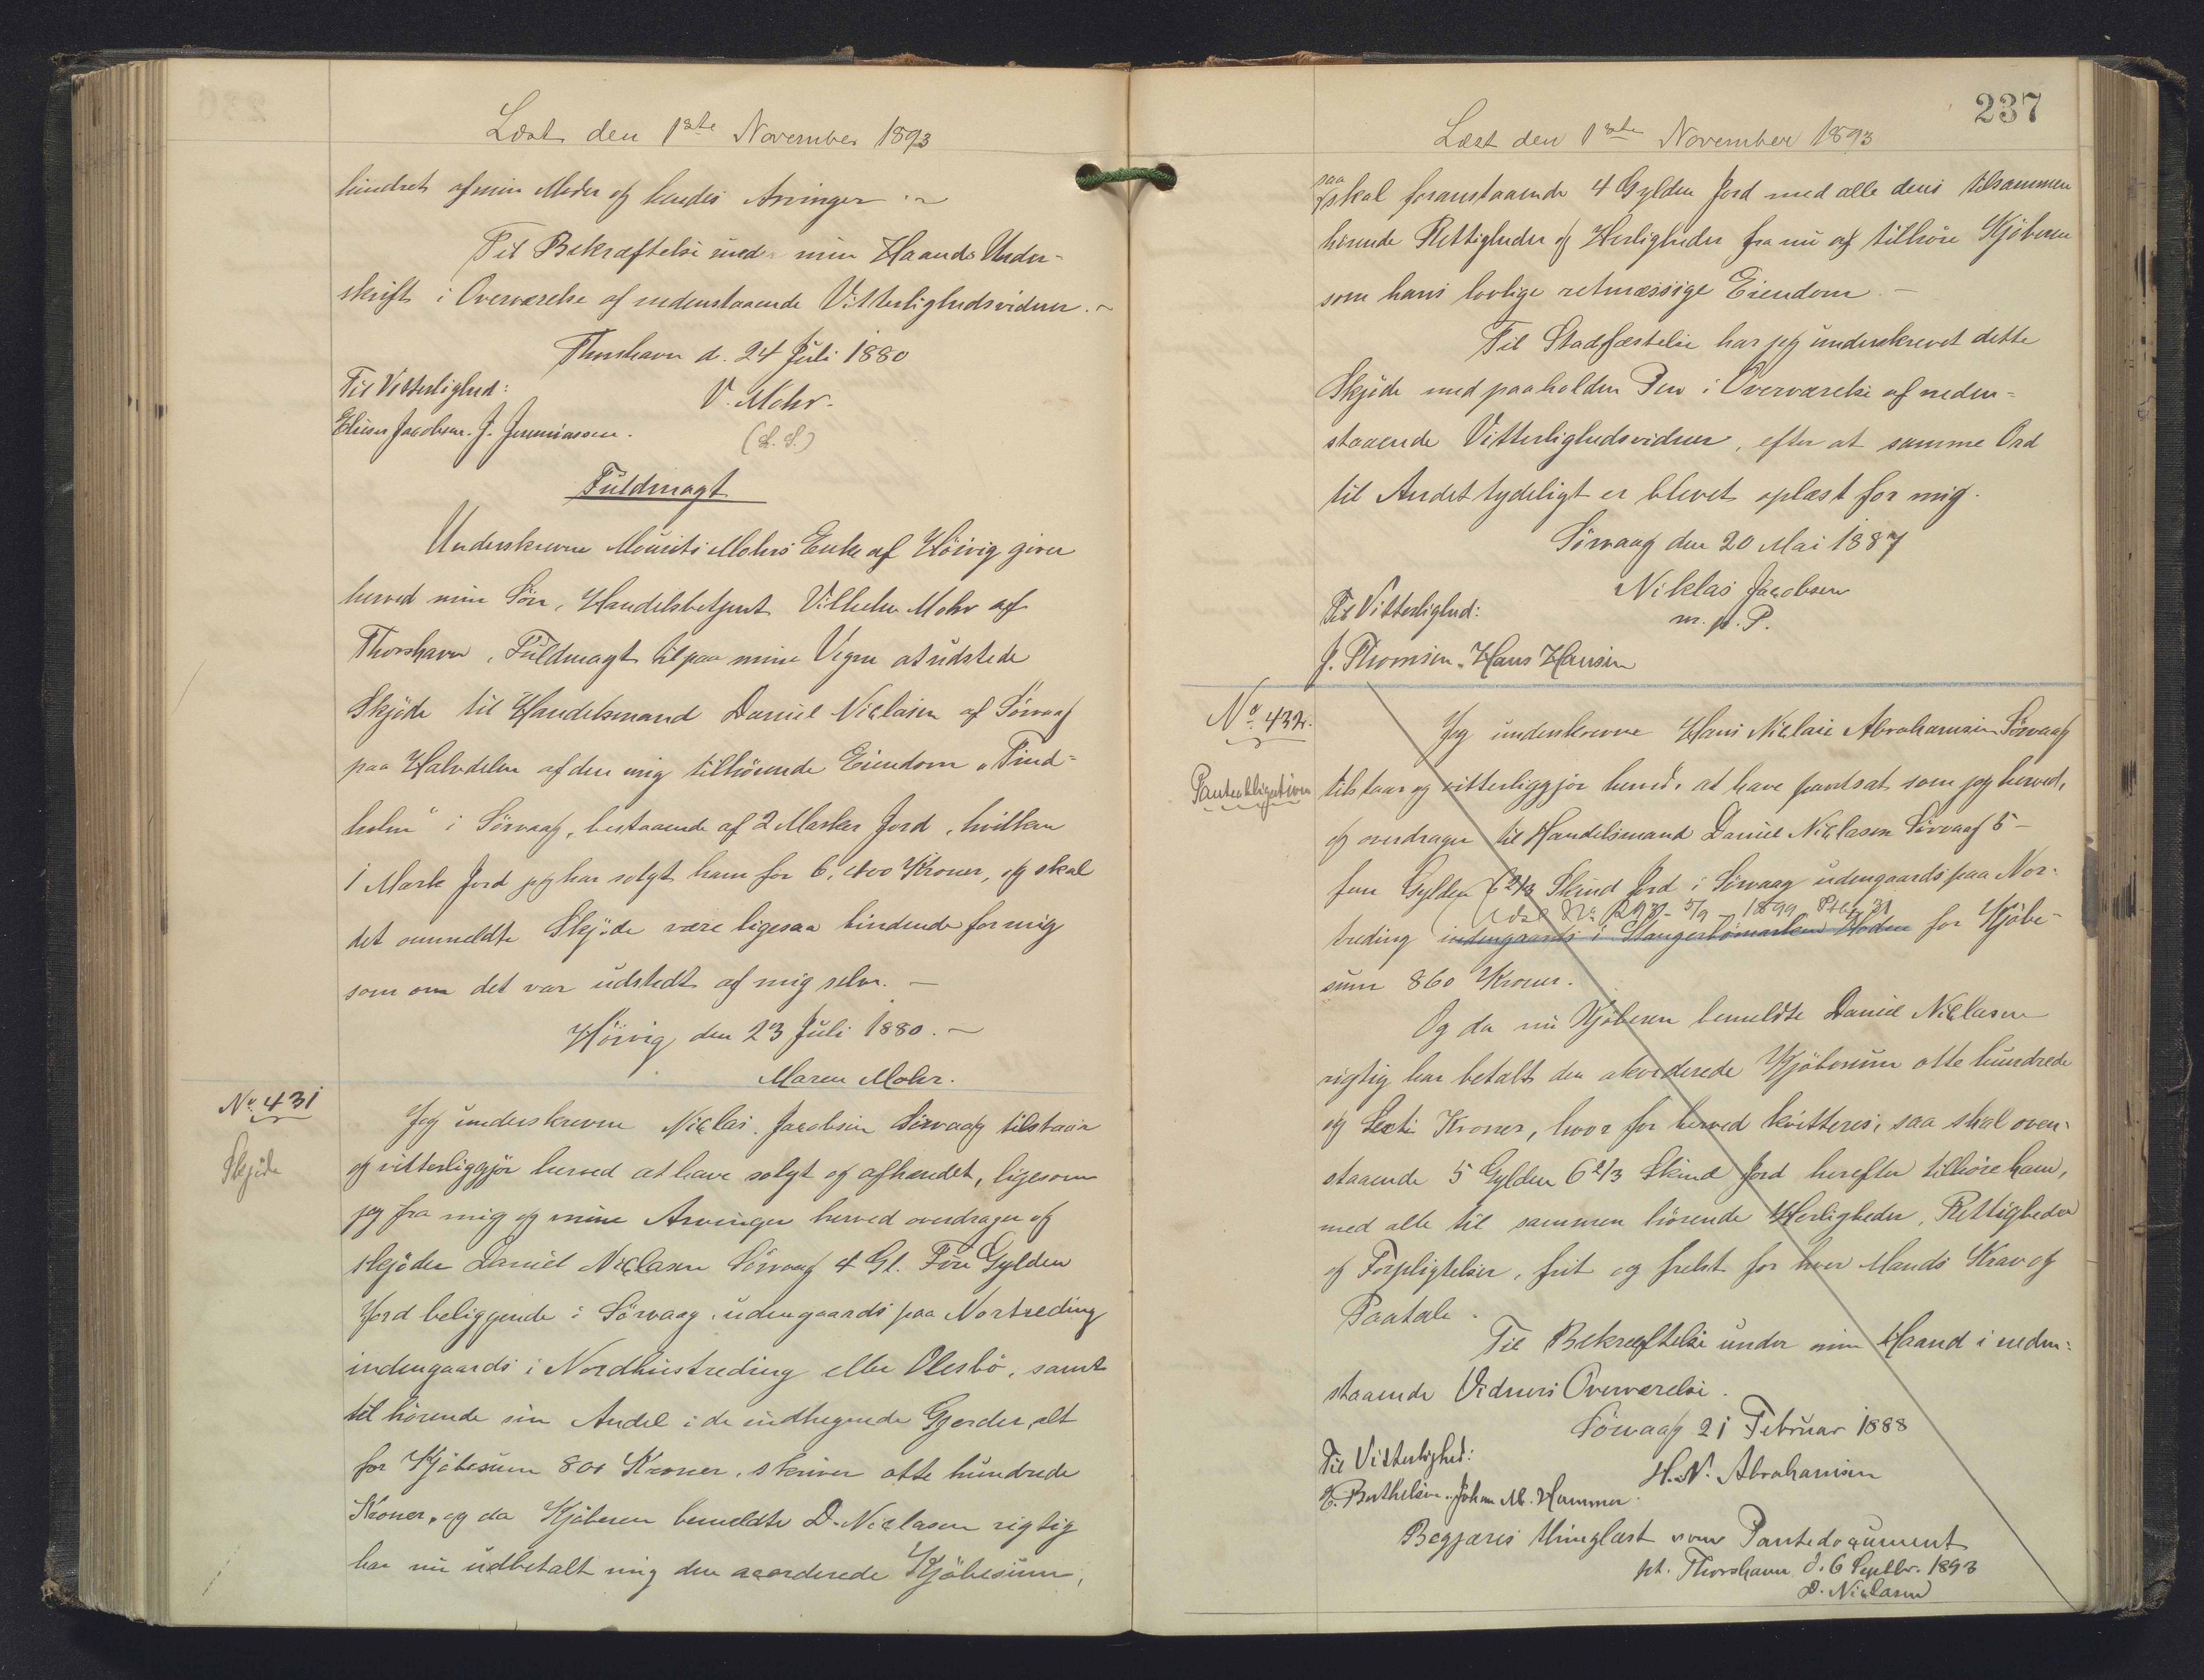 Læst den 1ste November 1893
hindret af min Moder og hendes Arvinger.
Til Bekræftelse under min Haands Under-
skrift i Overværelse af nedenstaaende Vitterlighedsvidner.
Thorshavn d. 24 Juli 1880
Til Vitterlighed:
V. Mohr.
Elieser Jacobsen. J. Jeremiassen.
(L. S.)
Fuldmagt
Underskrevne Mourits Mohrs Enke af Hôivig giver
herved min Sön, Handelsbetjent Vilhelm Mohr af
Thorshavn, Fuldmagt til paa mine Vegne at udstede
Skjöde til Handelsmand Daniel Niclasen af Sörvaag
paa Halvdelen af den mig tilhörende Eiendom „Tind-
holm" i Sörvaag, bestaaende af 2 Marker Jord, hvilken
1 Mark Jord jeg har solgt ham for 6,400 Kroner, og skal
det ommeldte Skjöde være ligesaa bindende for mig
som om det var udstedt af mig selv. —
Höivig den 23 Juli 1880. —
Maren Mohr.
No 431
Skjöde
Jeg underskrevne Niclas Jacobsen Sörvaag tilstaar
og vitterliggjör herved at have solgt og afhændet, ligesom
jeg fra mig og mine Arvinger herved overdrager og
skjöder Daniel Niclasen Sörvaag 4 Gl. Fire Gylden
Jord beliggende i Sörvaag, udengaards paa Nortreding
indengaards i Nordhustreding eller Olesbö, samt
til hörende sin Andel i de indhegnede Gjerder, alt
for Kjöbesum 800 Kroner, skriver otte hundrede
Kroner, og da Kjöberen bemeldte D. Niclasen rigtig
har nu udbetalt mig den accorderede Kjöbesum,
237
Læst den 1ste November 1893
saa
skal foranstaaende 4 Gylden Jord med alle dens tilsammen
hörende Rettigheder og Herligheder fra nu af tilhöre Kjöberen
som hans lovlige retmæssige Eiendom. —
Til Stadfæstelse har jeg underskrevet dette
Skjöde med paaholden Pen i Overværelse af neden-
staaende Vitterlighedsvidner, efter at samme Ord
til Andet tydeligt er blevet oplæst for mig.
Sörvaag den 20 Mai 1887
Niklas Jacobsen
m. p. P.
Til Vitterlighed:
J. Thomsen. Hans Hansen
No 432.
Pantobligation
Jeg underskrevne Hans Niclas Abrahamsen Sörvaag
tilstaar og vitterliggjör herved, at have pantsat som jeg herved,
og overdrager til Handelsmand Daniel Niclasen Sörvaag 5 —
fem Gylden 6 2/3 Skind Jord i Sörvaag udengaards paa Nor-
Udsl No 1293 - 5/9 - 1899 Ptbr 31
treding indengaards i Stangerbömarken Hoden for Kjöbe-
sum 860 Kroner.
Og da nu Kjöberen bemeldte Daniel Niclasen
rigtig har betalt den akorderede Kjöbesum otte hundrede
og Sexti Kroner, hvor for herved kvitteres, saa skal oven-
staaende 5 Gylden 6 2/3 Skind Jord herefter tilhöre ham,
med alle til sammen hörende Herligheder, Rettigheder
og Forpligtelser, frit og frelst for hver Mands Krav og
Paatale.
Til Bekræftelse under min Haand i neden-
staaende Vidners Overværelse.
Sörvaag 21 Februar 1888
Til Vitterlighed:
H. N. Abrahamsen
Berthelsen. Johan M. Hammer.
Begjæres thinglæst som Pantedocument
pt. Thorshavn d. 6 Septbr. 1893
D. Niclasen